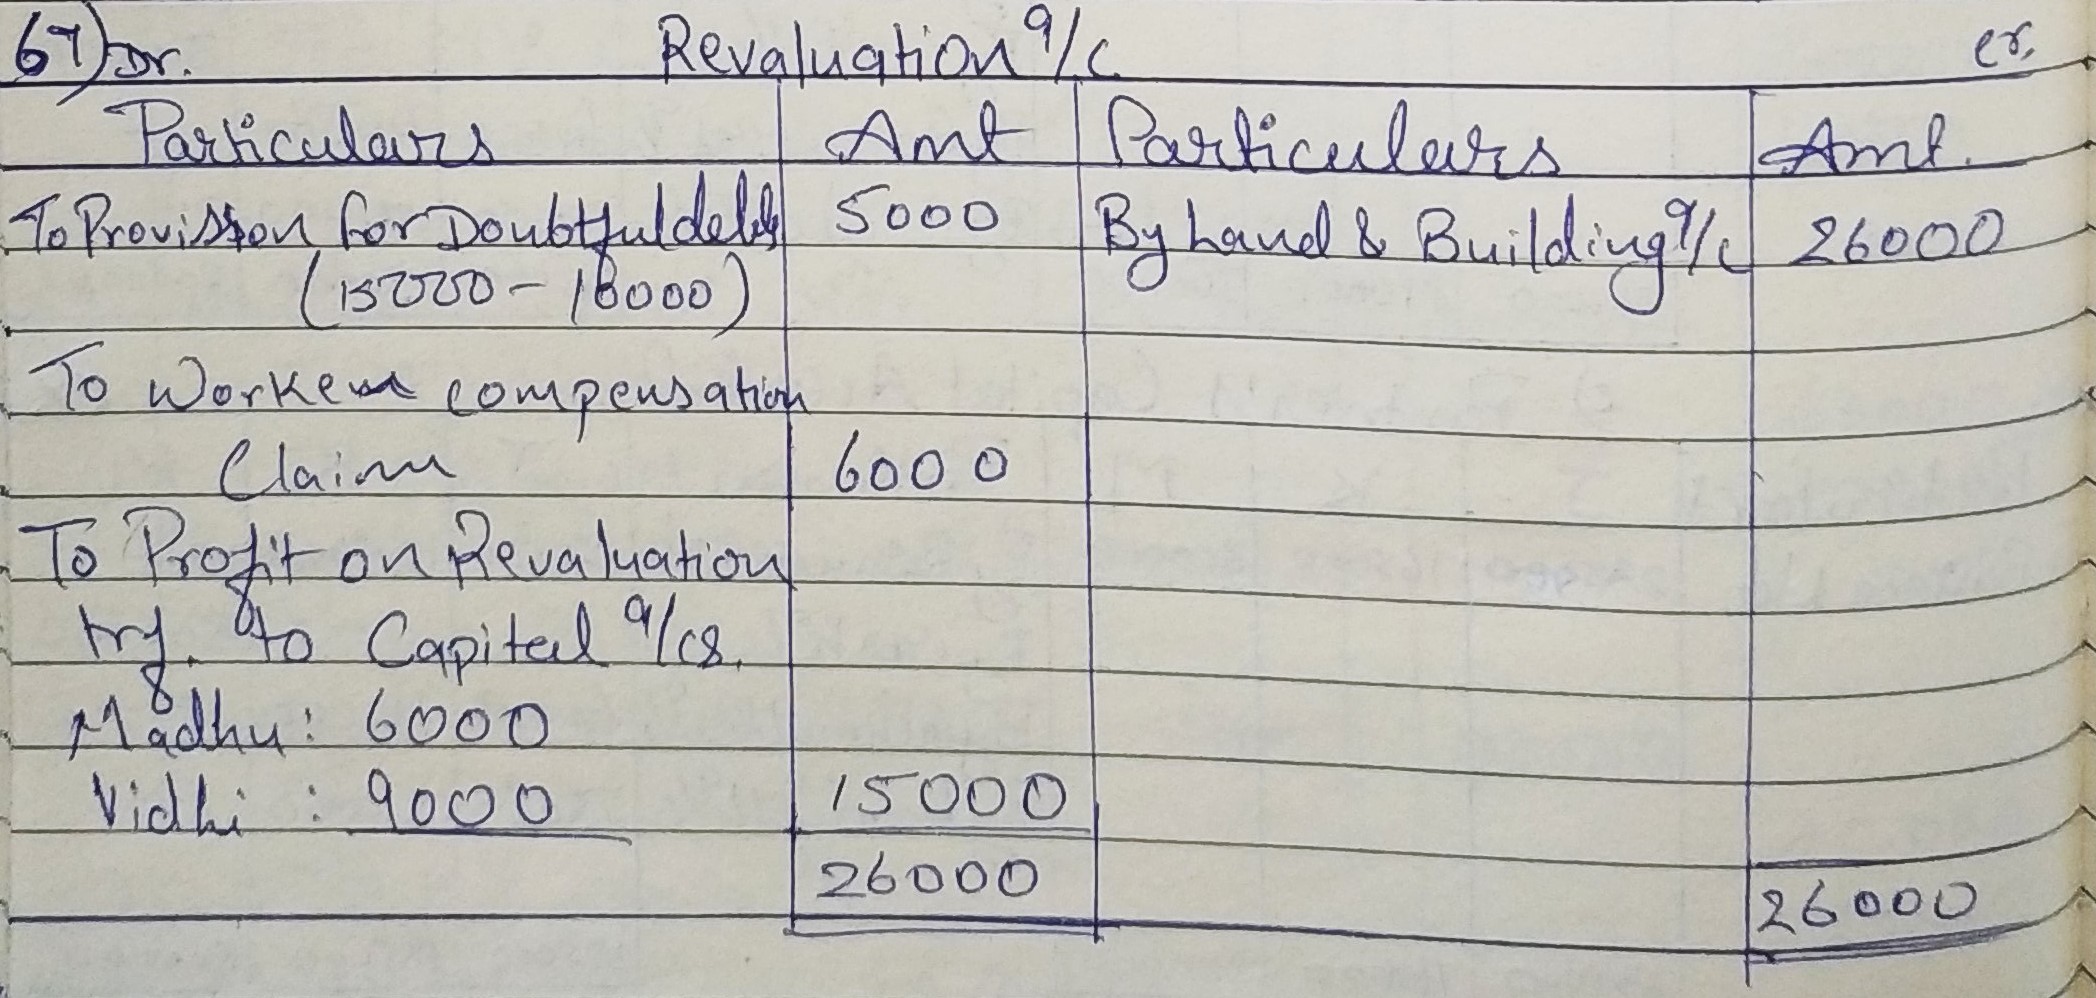 67) Dr. Revaluation a/c Cr.
Particulars Amt Particulars Amt.
To Provision for Doubtful debts 5000 By Land & Building a/c 26000
(15000 - 10000)
To Workers compensation
Claim 6000
To Profit on Revaluation
trf. to Capital a/cs.
Madhu: 6000
Vidhi : 9000 15000
26000 26000